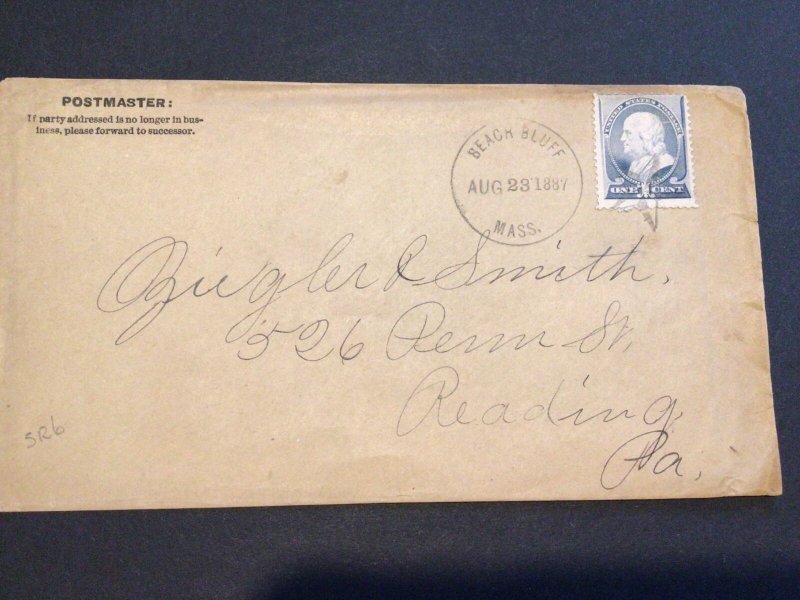 POSTMASTER:
If party addressed is no longer in bus-
iness, please forward to successor.
BEACH BLUFF
AUG 23 1887
MASS.
UNITED STATES POSTAGE
ONE CENT
Ziegler & Smith.
526 Penn St,
Reading
Pa,